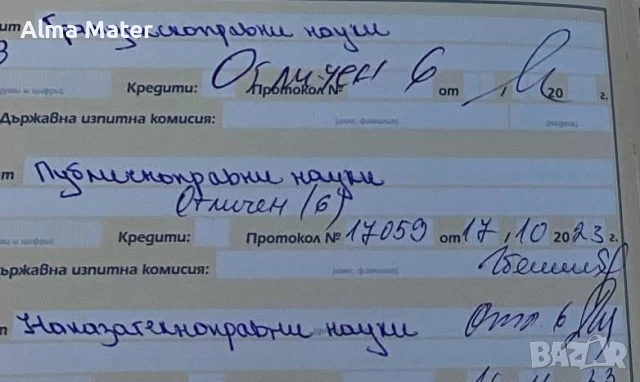 Alma Mater
ит Гражданскоправни науки
Отличен 6
Кредити: Протокол № от , 20 г.
Държавна изпитна комисия:
(име, фамилия) (подпис)
т Публичноправни науки
Отличен (6)
Кредити: Протокол № 17059 от 17, 10 2023 г.
ържавна изпитна комисия:
(име, фамилия)
т Наказателноправни науки Отл 6
BAZAR
bg